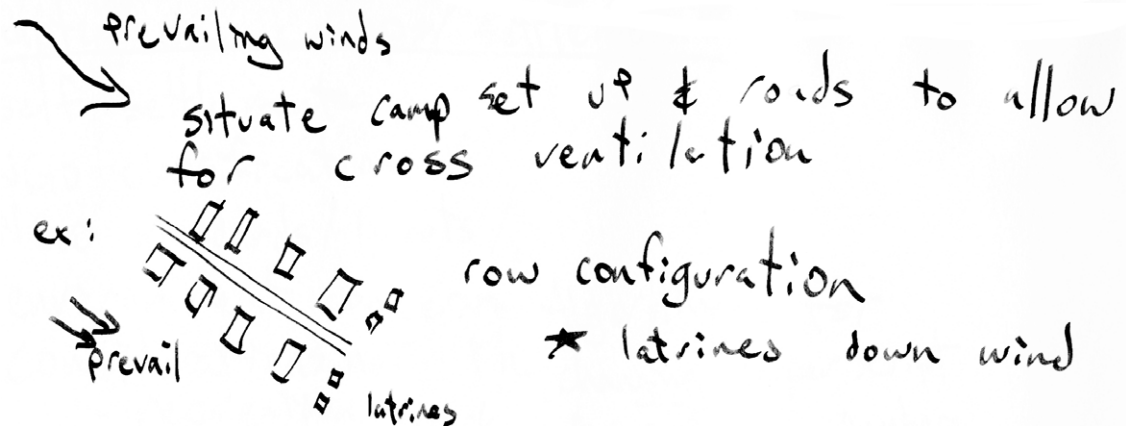 prevailing winds
situate camp set up & roads to allow
for cross ventilation
ex:
row configuration
* latrines down wind
prevail
latrines